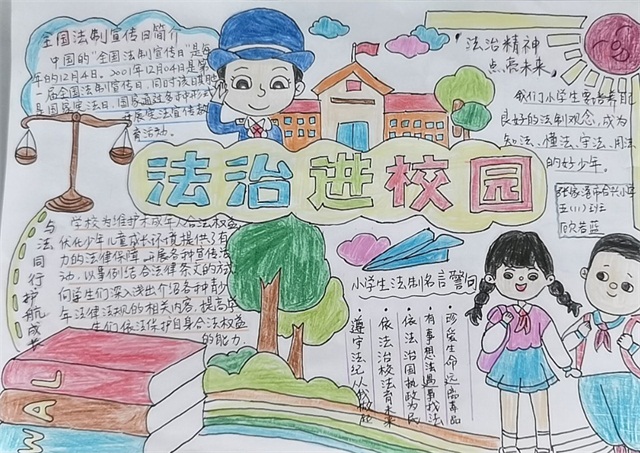 全国法制宣传日简介
中国的"全国法制宣传日"是每
年的12月4日。2001年12月04日是第
一届全国法制宣传日,同时该日期
是国家宪法日,国家通过多种形式
开展宪法宣传教
育活动。
法治精神
点亮未来
我们小学生要培养自己
良好的法制观念,成为
知法、懂法、守法、用法
的好少年。
张家港市合兴小学
五(11)班
法治进校园
与法同行护航成长
学校为维护未成年人合法权益
优化少年儿童成长环境提供了有
力的法律保障,开展各种宣传活
动,以事例结合法律条文的方式
向学生们深入浅出介绍各种青少
年法律法规的相关内容,提高学
生们依法保护自身合法权益
的能力.
小学生法制名言警句
珍爱生命远离毒品
有事想法遇事找法
依法治国执政为民
依法治校法育未来
遵守法纪从我做起
LAW